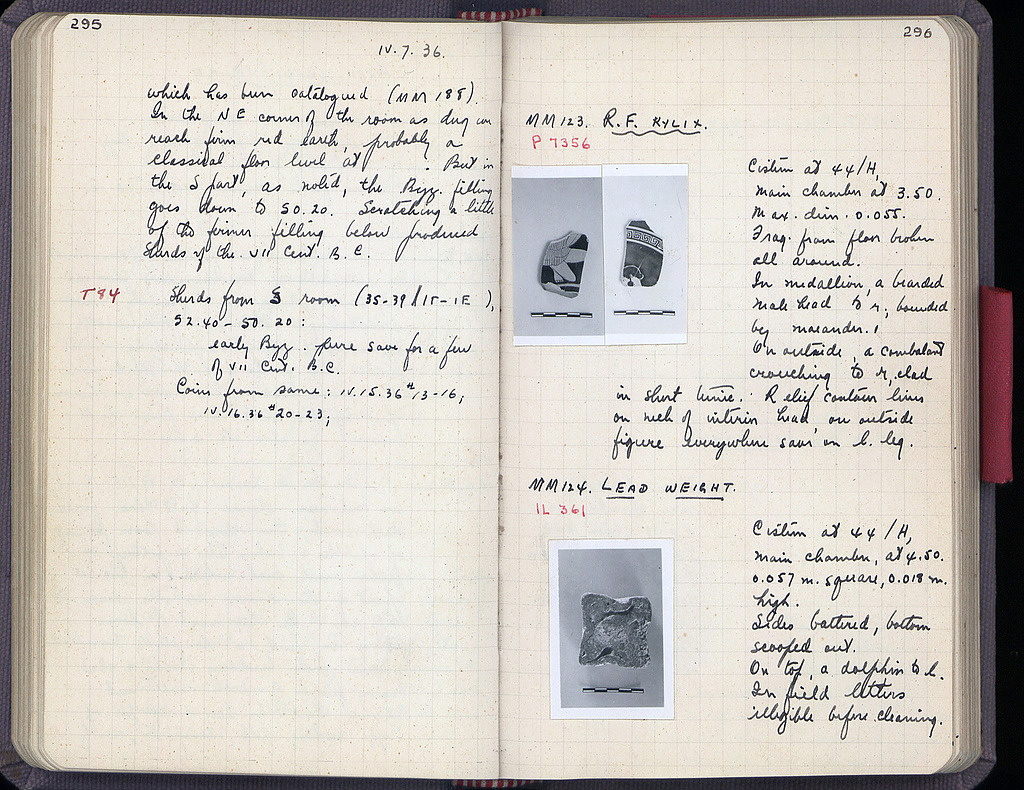 295
IV. 7. 36.
which has been catalogued (MM 188).
In the NE corner of the room as dug we
reach firm red earth, probably a
classical floor level at . But in
the S part, as noted, the Byz. filling
goes down to 50.20. Scratching a little
of the former filling below produced
sherds of the VII Cent. B.C.
T 84
Sherds from S room (35-39/ΙΓ-ΙΕ ),
52.40 - 50.20 :
early Byz. pure save for a few
of VII Cent. B.C.
Coins from same : IV.15.36 #13-16;
IV.16.36 #20-23;
296
MM 123. R.F. KYLIX.
P 7356
Cistern at 44/H,
main chamber at 3.50.
Max. dim. 0.055.
Frag. from floor broken
all around.
In medallion, a bearded
male head to r, bounded
by maeander.
On outside, a combatant
crouching to r, clad
in short tunic. Relief contour lines
on neck of interior head, on outside
figure everywhere save on l. leg.
MM 124. LEAD WEIGHT.
IL 361
Cistern at 44/H,
main chamber, at 4.50.
0.057 m. square, 0.018 m.
high.
Sides battered, bottom
scooped out.
On top, a dolphin to l.
In field letters
illegible before cleaning.